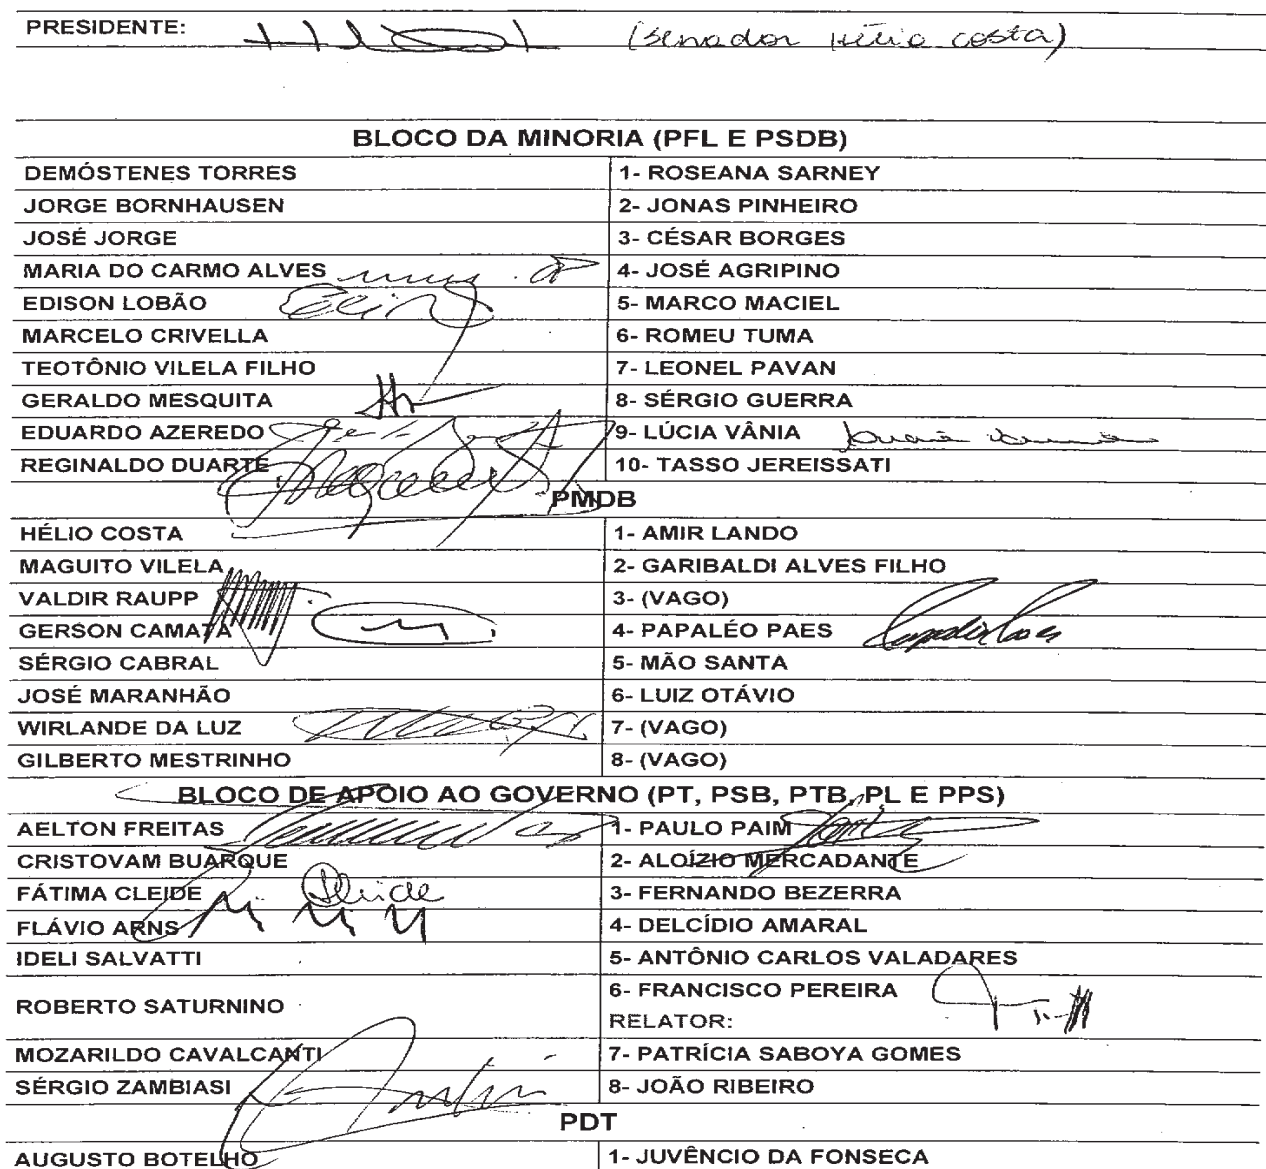 PRESIDENTE: (Senador Hélio Costa)
BLOCO DA MINORIA (PFL E PSDB)
DEMÓSTENES TORRES 1- ROSEANA SARNEY
JORGE BORNHAUSEN 2- JONAS PINHEIRO
JOSÉ JORGE 3- CÉSAR BORGES
MARIA DO CARMO ALVES 4- JOSÉ AGRIPINO
EDISON LOBÃO 5- MARCO MACIEL
MARCELO CRIVELLA 6- ROMEU TUMA
TEOTÔNIO VILELA FILHO 7- LEONEL PAVAN
GERALDO MESQUITA 8- SÉRGIO GUERRA
EDUARDO AZEREDO 9- LÚCIA VÂNIA
REGINALDO DUARTE 10- TASSO JEREISSATI
PMDB
HÉLIO COSTA 1- AMIR LANDO
MAGUITO VILELA 2- GARIBALDI ALVES FILHO
VALDIR RAUPP 3- (VAGO)
GERSON CAMATA 4- PAPALÉO PAES
SÉRGIO CABRAL 5- MÃO SANTA
JOSÉ MARANHÃO 6- LUIZ OTÁVIO
WIRLANDE DA LUZ 7- (VAGO)
GILBERTO MESTRINHO 8- (VAGO)
BLOCO DE APOIO AO GOVERNO (PT, PSB, PTB, PL E PPS)
AELTON FREITAS 1- PAULO PAIM
CRISTOVAM BUARQUE 2- ALOÍZIO MERCADANTE
FÁTIMA CLEIDE Cleide 3- FERNANDO BEZERRA
FLÁVIO ARNS 4- DELCÍDIO AMARAL
IDELI SALVATTI 5- ANTÔNIO CARLOS VALADARES
ROBERTO SATURNINO 6- FRANCISCO PEREIRA
RELATOR:
MOZARILDO CAVALCANTI 7- PATRÍCIA SABOYA GOMES
SÉRGIO ZAMBIASI 8- JOÃO RIBEIRO
PDT
AUGUSTO BOTELHO 1- JUVÊNCIO DA FONSECA